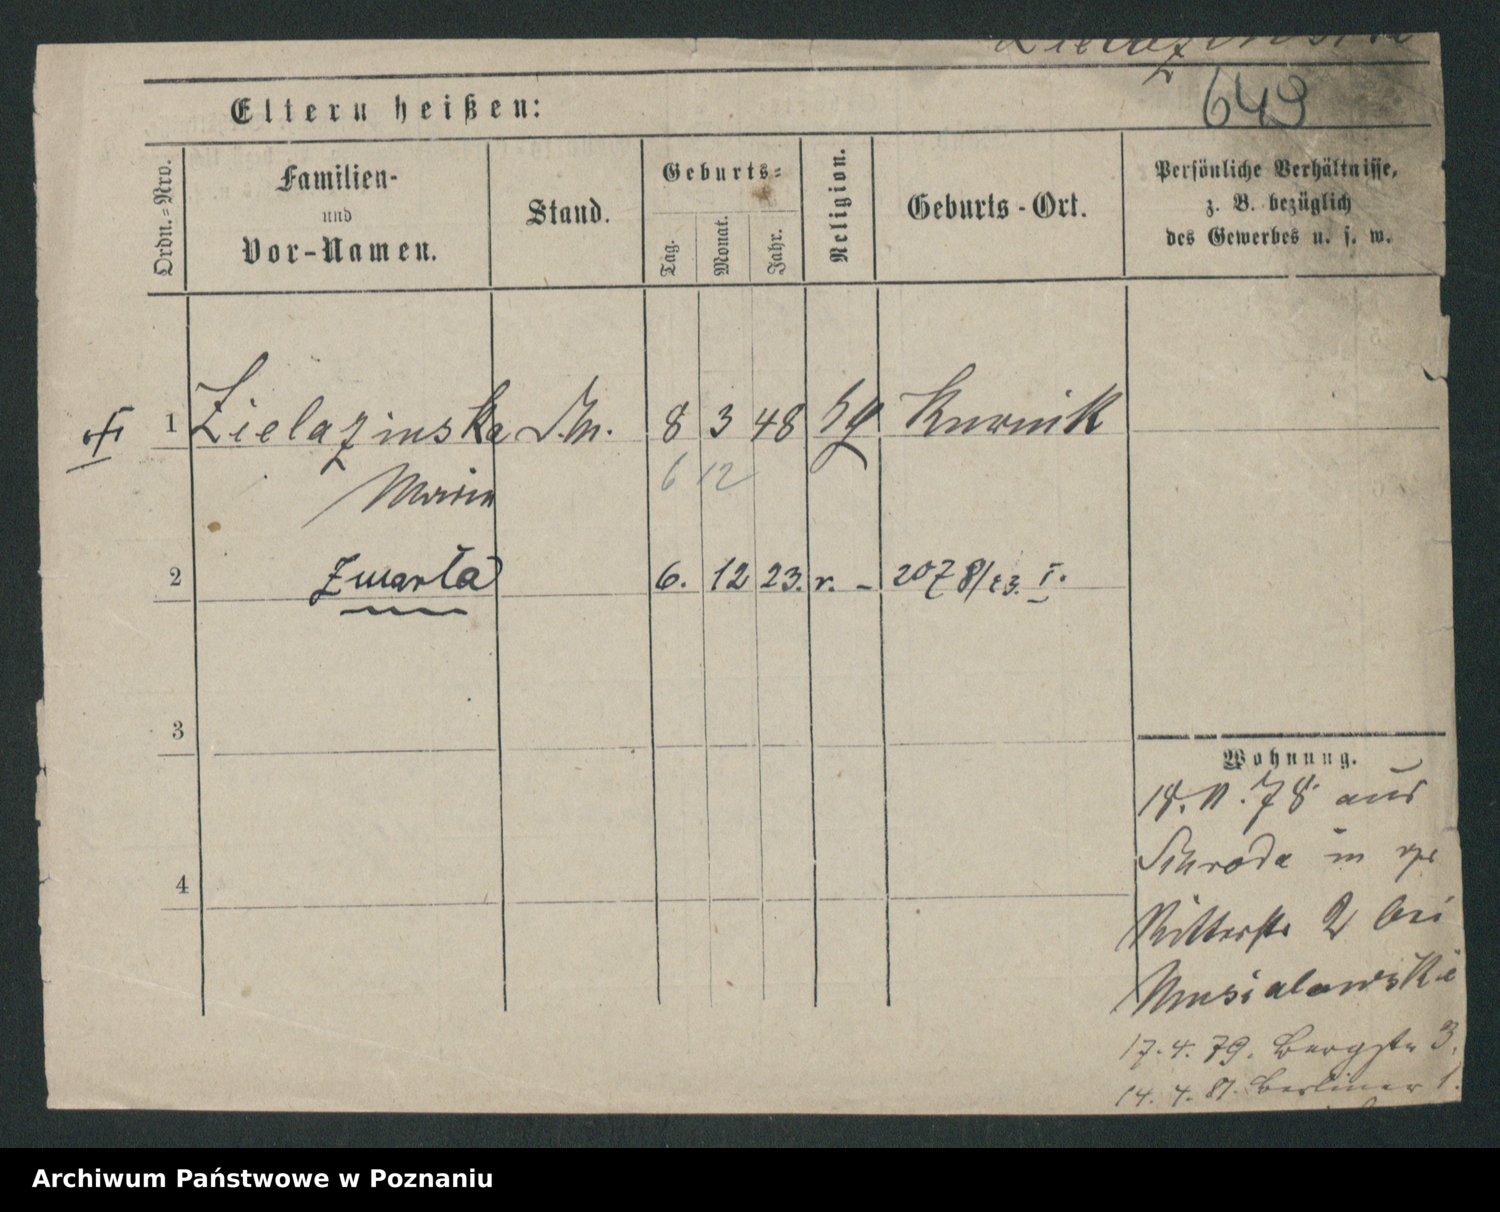 Zielazinska
649
Eltern heißen:
Ordn.=Nro.
Familien-
und
Vor-Namen.
Stand.
Geburts=
Tag.
Monat.
Jahr.
Religion.
Geburts-Ort.
Persönliche Verhältnisse,
z. B. bezüglich
des Gewerbes u. s. w.
1 Zielazinska 8 3 48 Kurnik
6 12
Maria
2 Zmarła 6. 12 23. r. – 2078/23. I.
3
Wohnung.
18. 11. 78 aus
Schroda in
4
Ritterstr 2 bei
Musialowski
17. 4. 79. Bergstr 3.
14. 4. 81. Berliner 1.
Archiwum Państwowe w Poznaniu